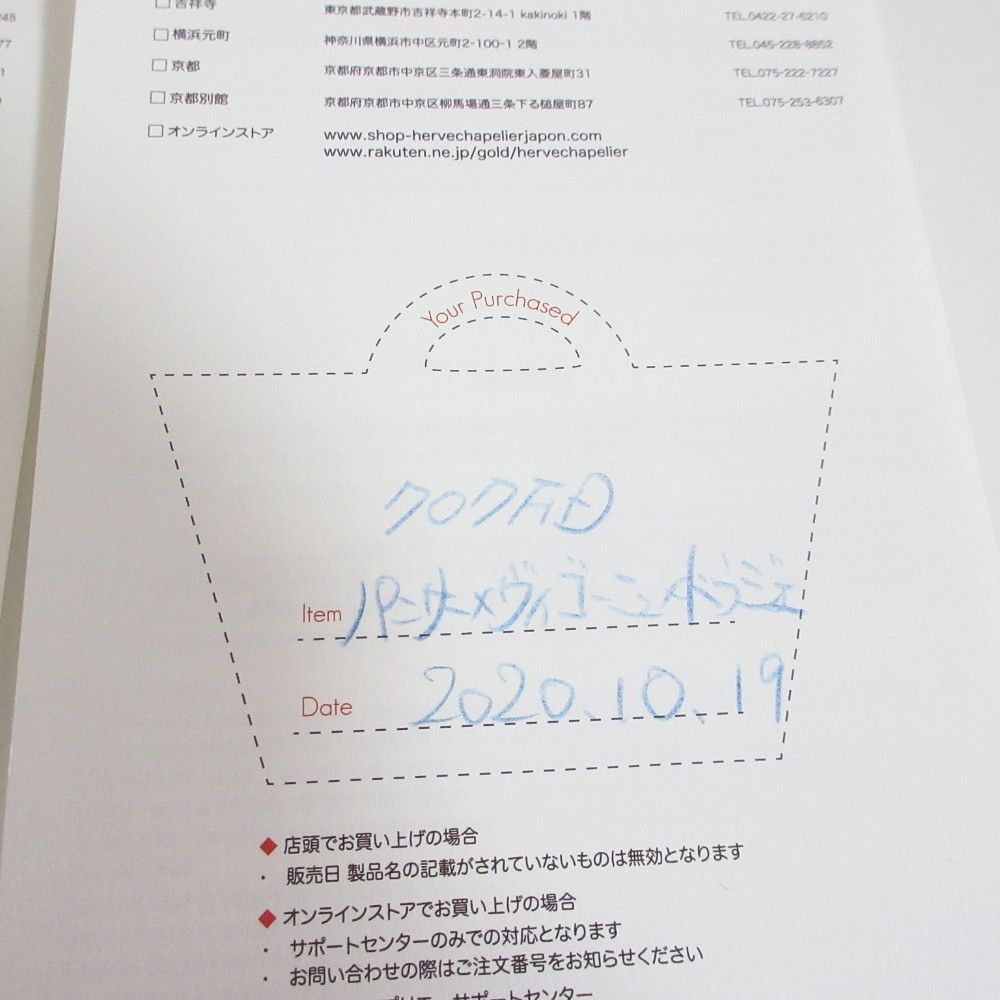 45
77
□ 吉祥寺 東京都武蔵野市吉祥寺本町2-14-1 kakinoki 1階 TEL.0422-27-6210
□ 横浜元町 神奈川県横浜市中区元町2-100-1 2階 TEL.045-228-8852
□ 京都 京都府京都市中京区三条通東洞院東入菱屋町31 TEL.075-222-7227
□ 京都別館 京都府京都市中京区柳馬場通三条下る槌屋町87 TEL.075-253-6307
□ オンラインストア www.shop-hervechapelierjapon.com
www.rakuten.ne.jp/gold/hervechapelier
Your Purchased
Item
Date 2020.10.19
◆ 店頭でお買い上げの場合
・ 販売日 製品名の記載がされていないものは無効となります
◆ オンラインストアでお買い上げの場合
・ サポートセンターのみでの対応となります
・ お問い合わせの際はご注文番号をお知らせください
サポートセンター